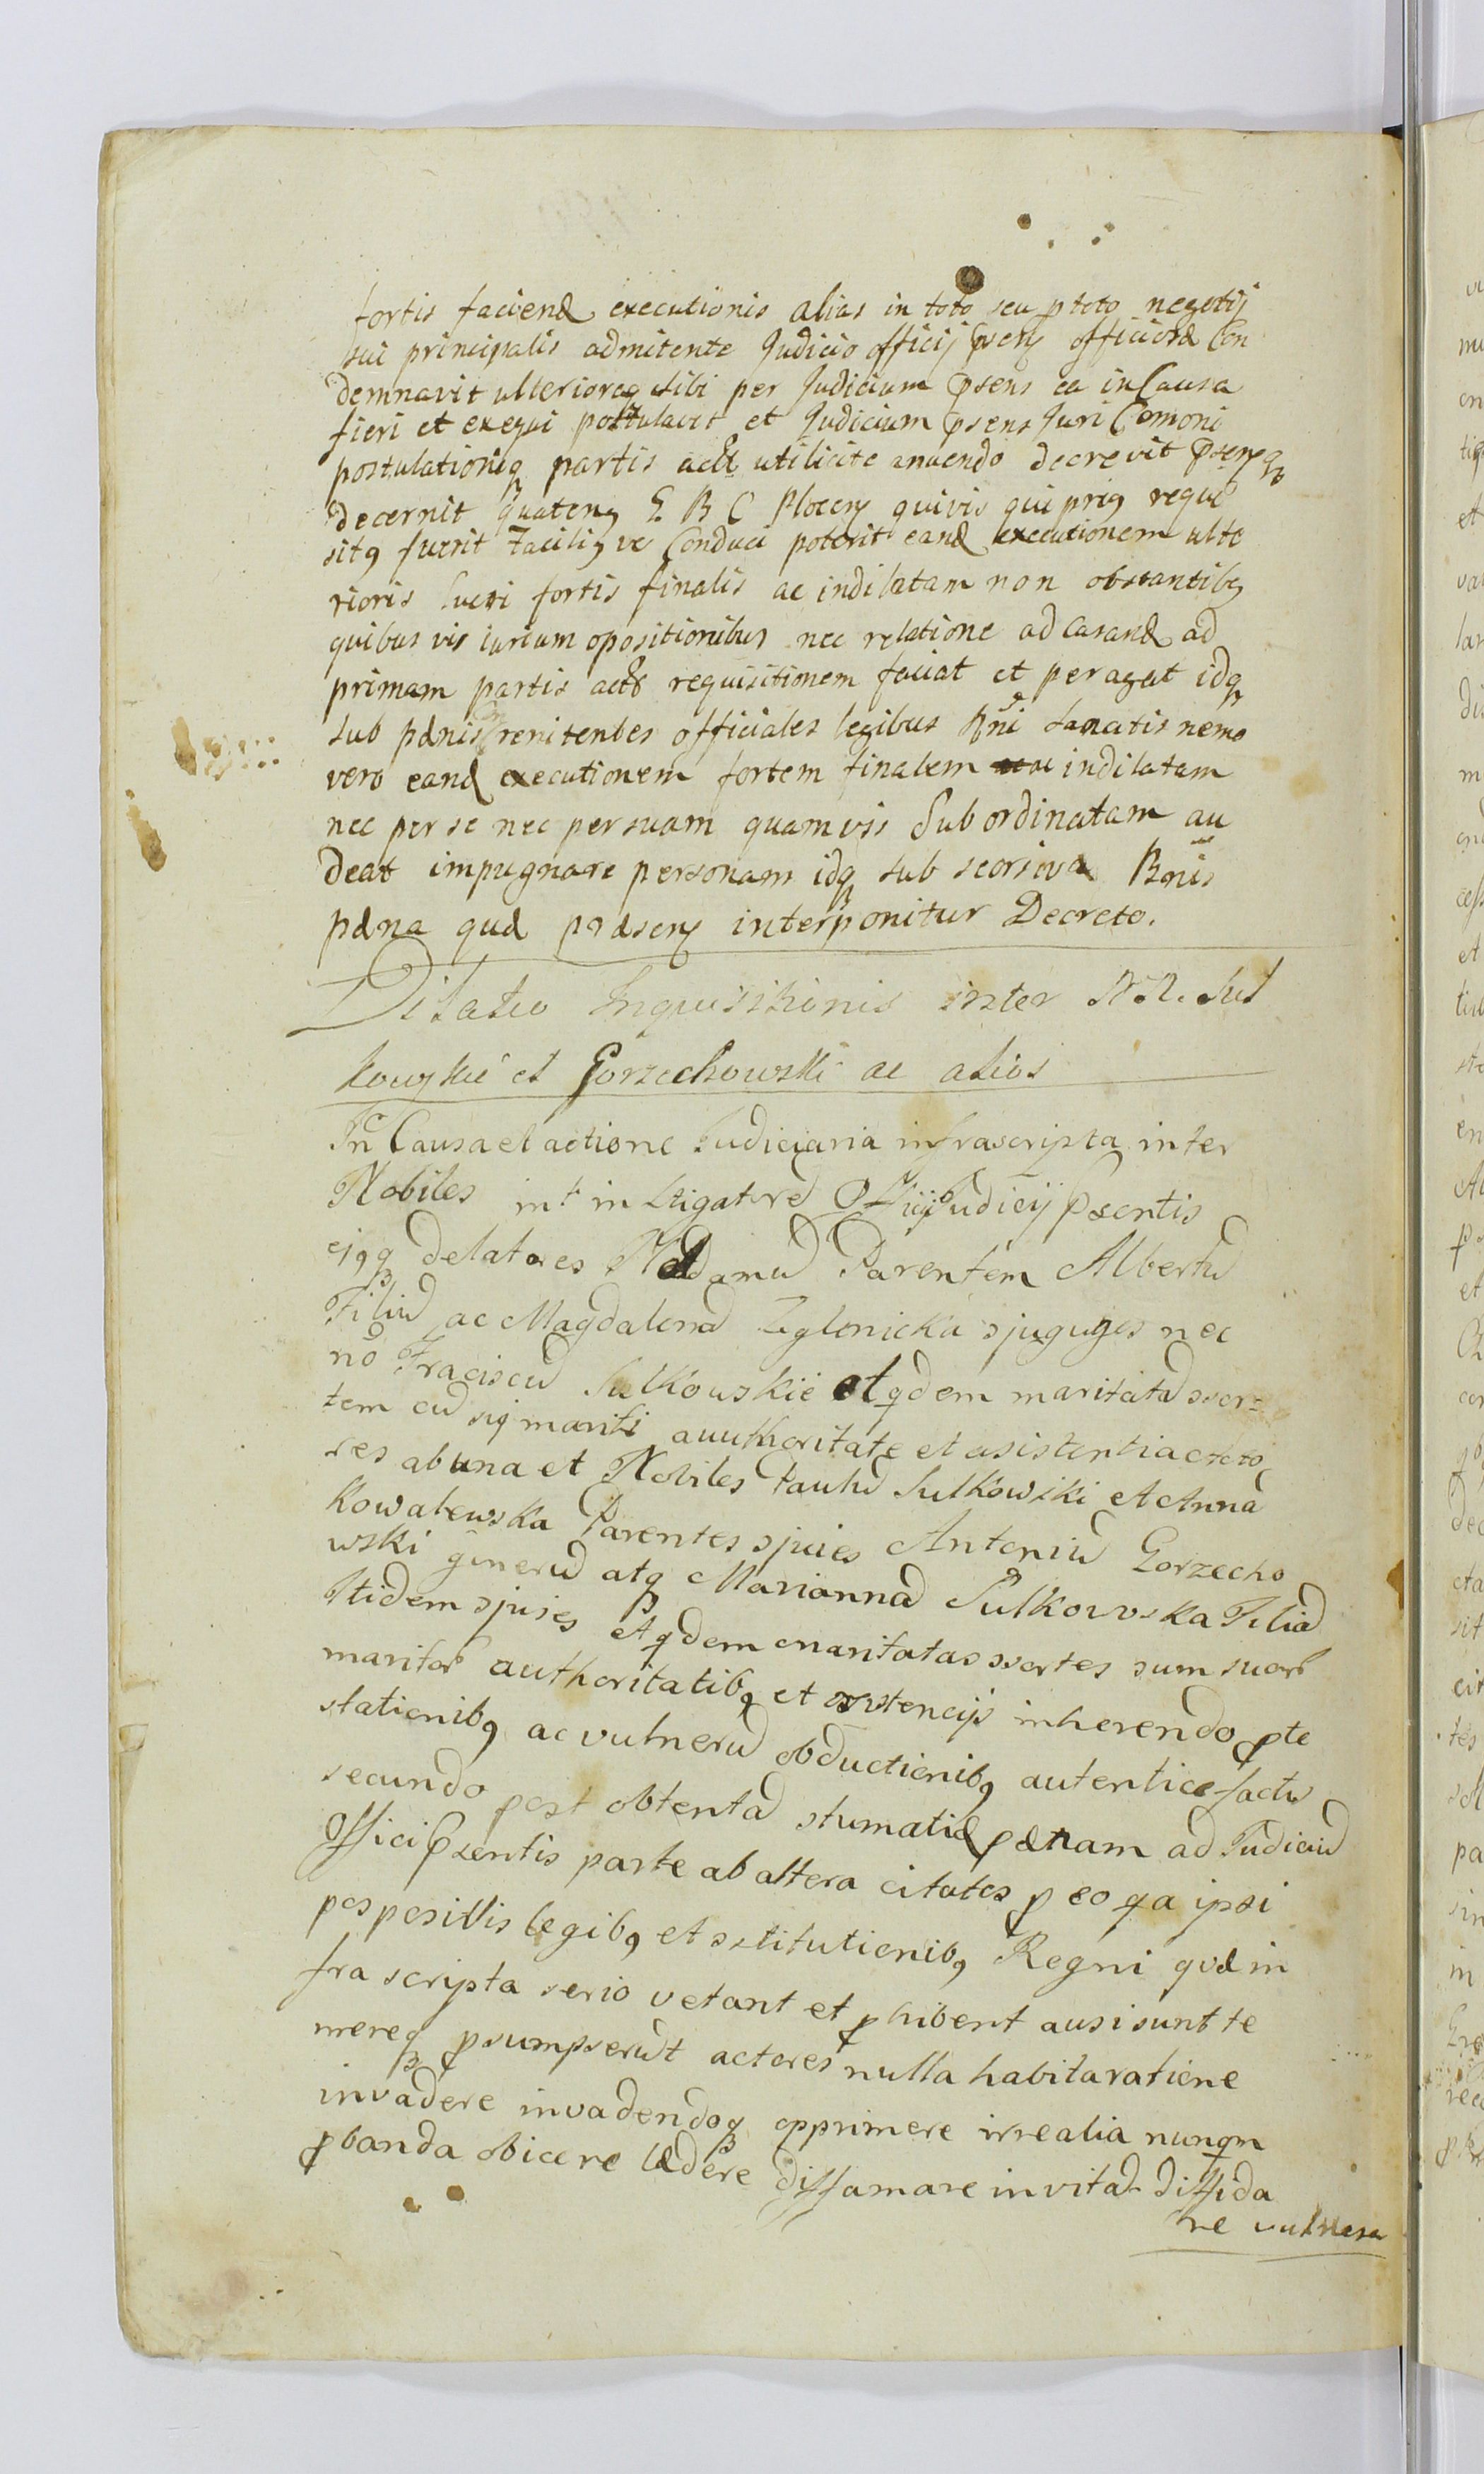 fortis faciend executionis alias in toto seu ptoto negotij
sui principalis admitente Judicio officij psens officiosa Con
demnavit ulterioreq sibi per Judicium psens ea in Causa
fieri et exequi postulavit et Judicium psens Juri Comoni
postulationiq partis act utilicite anuendo decrevit psensq
decernit quateng E B C Plocens quivis qui prig requi
sitg fuerit facilig ve Conduci poterit eand executionem ulte
rioris lucri fortis finalis ac indilatam non obstantibg
quibus vis iurium opositionibus nec relatione ad casand ad
primam partis act requisitionem faciat et peragat idq
sub pænis in renitentes officiales legibus Rni sanatis nemo
vero eand executionem fortem finalem ac indilatam
nec per se nec per suam quamvis Subordinatam au
deat impugnare personam idq sub seorsiva Bnis
pæna quæ præsens interponitur Decreto.
Dilatio Inquisitionis inter NN. Sul
kowskie et Gorzechowski ac alios
In Causa et actione Judiciaria infrascripta inter
Nobiles int instigatore Officij Judicij Psentis
ejgq delatores Adamu Parentem Albertu
Filiu ac Magdalena Zglenicka sjuguges nec
no Fraciscu Sulkowskie et qdem maritata
tem cu sui mariti auuthoritate et asistentia
res ab una et Nobiles Paulu Sulkowski et Anna
Kowalewska Parentes sjuies Antoniu Gorzecho
wski generu atq Marianna Sulkowska Filia
Itidem sjuies et qdem maritatas sum suor
maritor authoritatibg et asistencijs inherendo pte
stationibg ac vulneru obductionibg autentice factis
secundo post obtenta stumatiæ pænam ad Judiciu
Offici Psentis parte ab altera citatos p eo qa ipsi
pospositis legibg et sstitutionibg Regni quæ in
fra scripta serio vetant et phibent ausi sunt te
mereq psumpserut actores nulla habita ratione
invadere invadendoq opprimere irrealia nunqm
pbanda obicere lædere diffamare in vita diffida
re vulnera